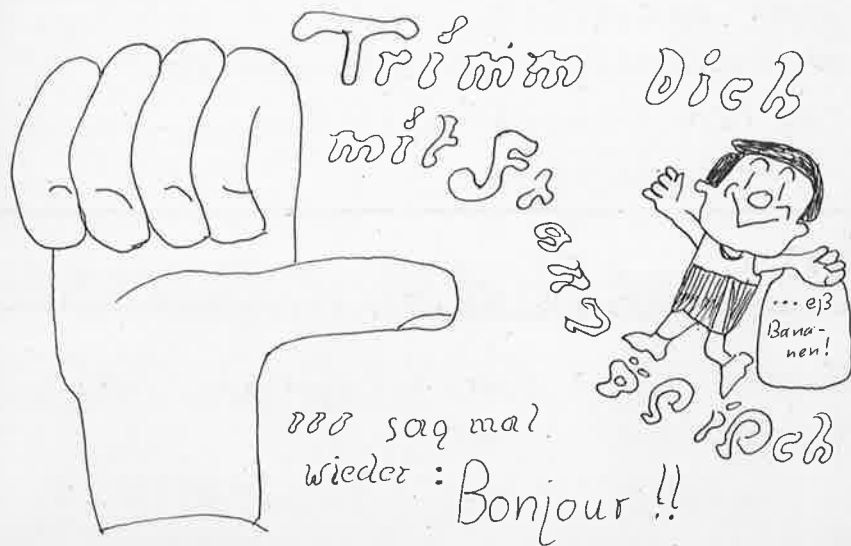 Trimm Dich
mit Französisch
... eß
Bana-
nen!
... sag mal
wieder: Bonjour!!